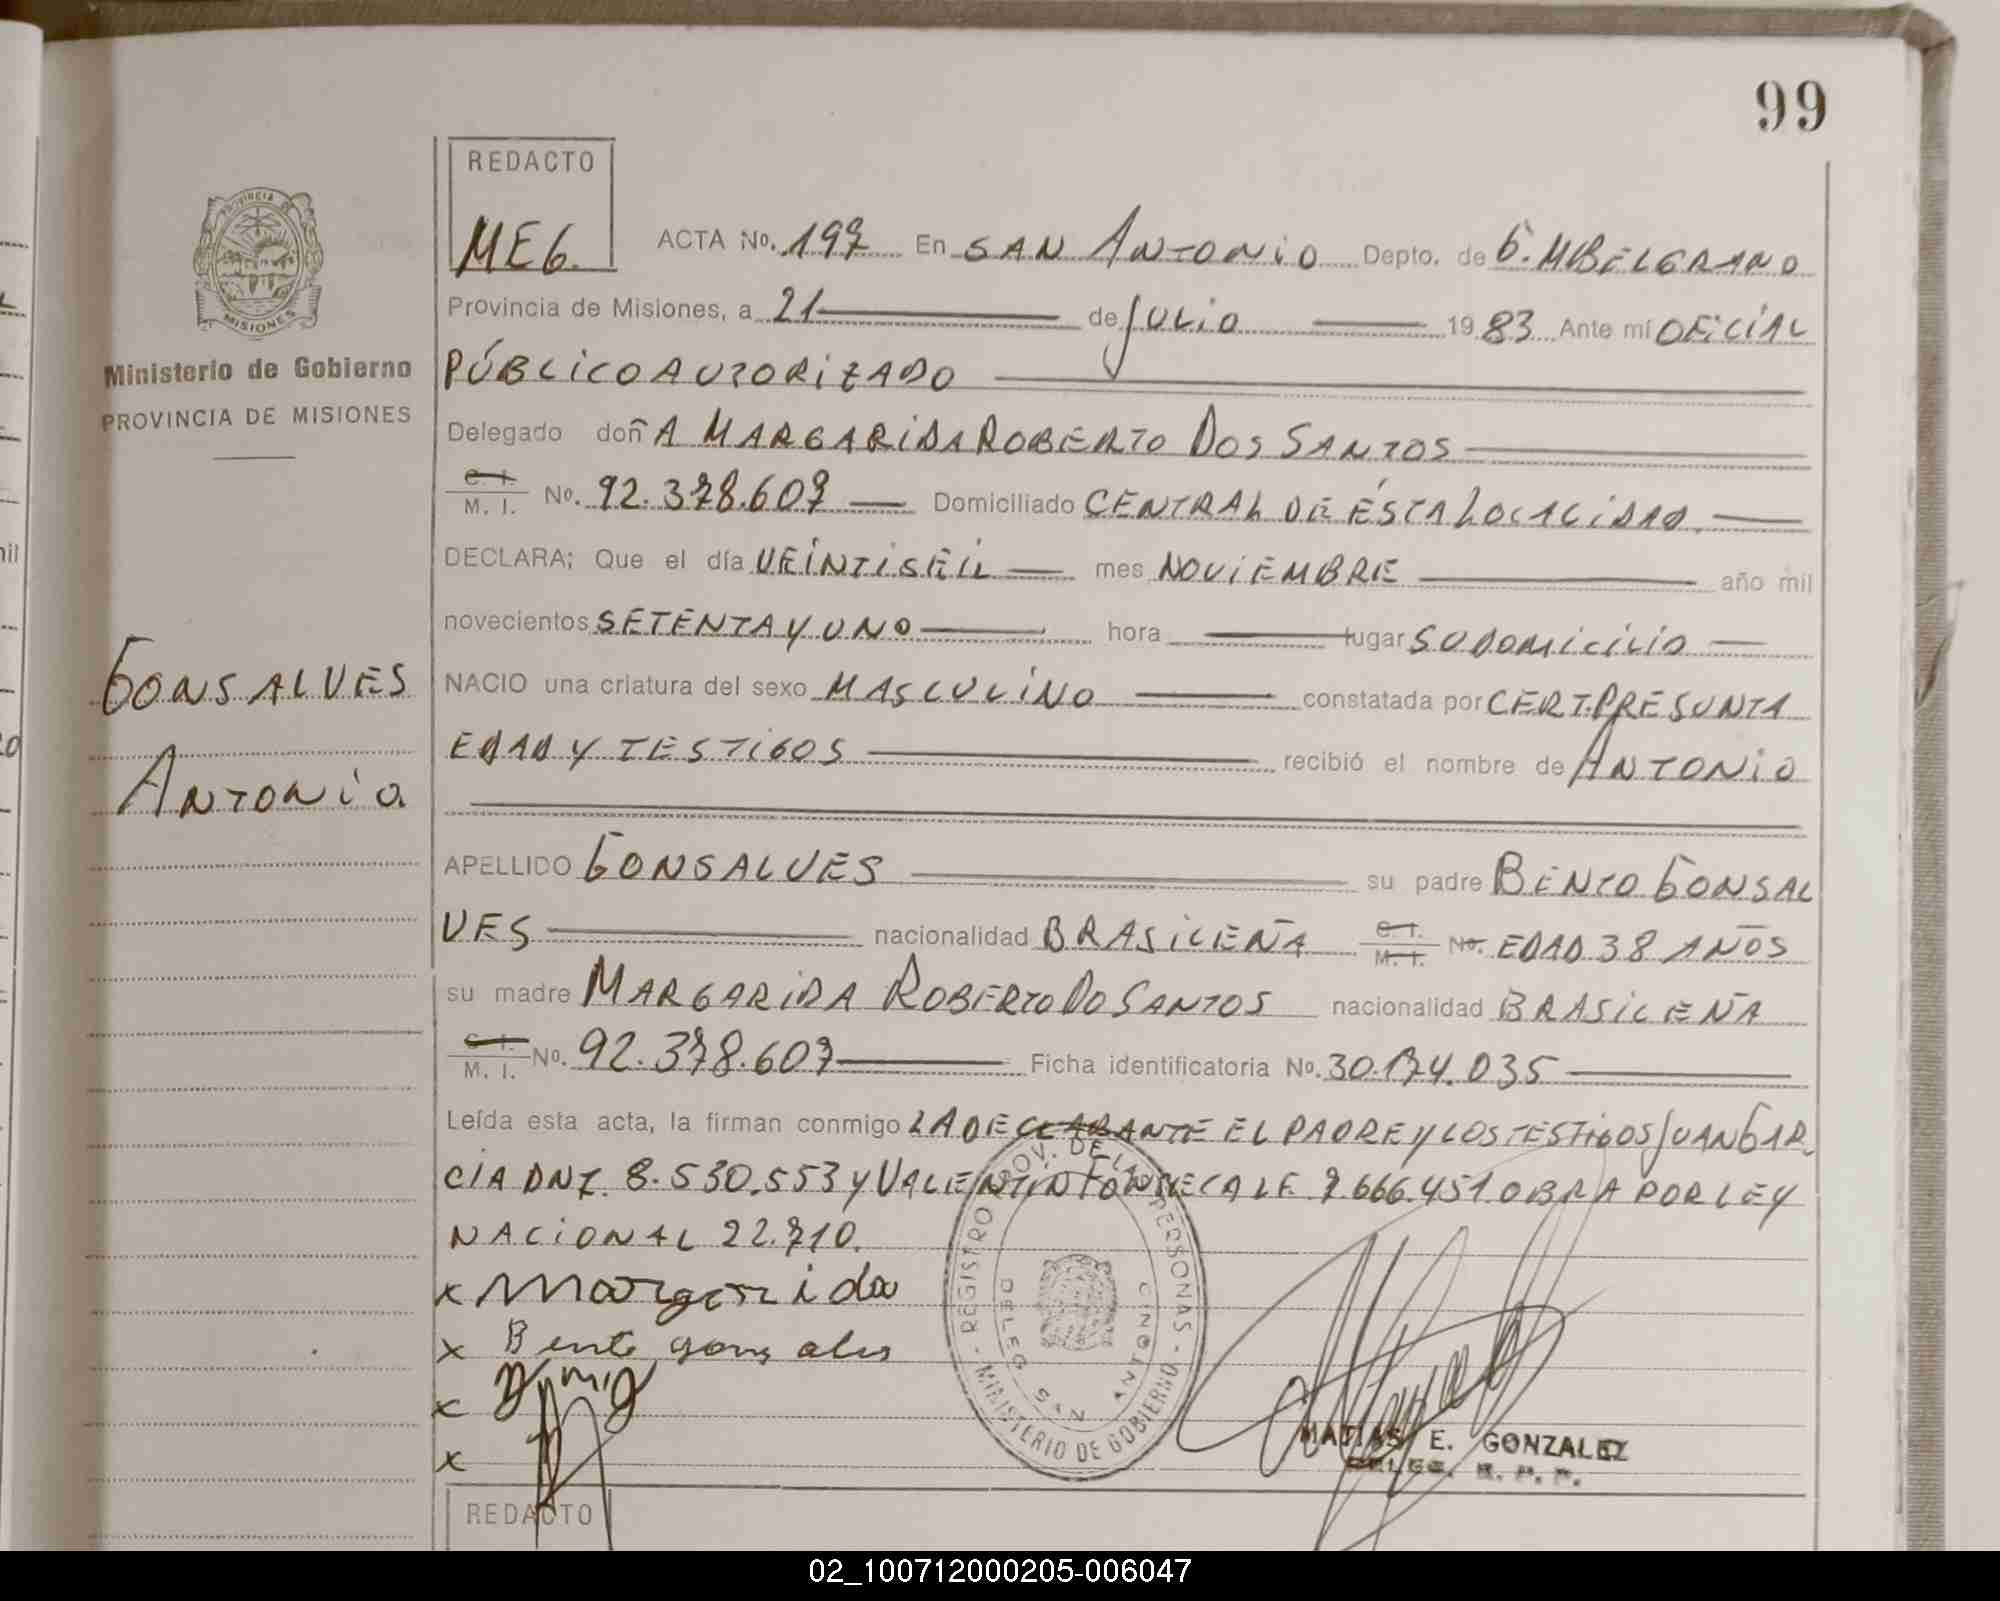 99
REDACTO
MEG.
ACTA No. 197 En SAN ANTONIO Depto. de G. MBELGRANO
PROVINCIA DE
MISIONES
Ministerio de Gobierno
PROVINCIA DE MISIONES
Provincia de Misiones, a 21 de JULIO 1983 Ante mí OFICIAL
PÚBLICO AUTORIZADO
Delegado doñA MARGARIDA ROBERTO DOS SANTOS
C. I.
M. I. No. 92.378.607 Domiciliado CENTRAL DE ÉSTA LOCALIDAD.
DECLARA; Que el día VEINTISEIS mes NOVIEMBRE año mil
novecientos SETENTA Y UNO hora lugar SU DOMICILIO
GONSALVES
NACIO una criatura del sexo MASCULINO constatada por CERT. PRESUNTA
ANTONIO
EDAD Y TESTIGOS recibió el nombre de ANTONIO
APELLIDO GONSALVES su padre BENTO GONSAL
VES nacionalidad BRASILEÑA C. I. M. I. No. EDAD 38 AÑOS
su madre MARGARIDA ROBERTO DO SANTOS nacionalidad BRASILEÑA
C. I.
M. I. No. 92.378.607 Ficha identificatoria No. 30.174.035
Leída esta acta, la firman conmigo LA DECLARANTE EL PADRE Y LOS TESTIGOS JUAN GAR
CIA DNI. 8.530.553 Y VALENTIN FONSECA LE. 7.666.451 OBRA POR LEY
NACIONAL 22.710.
x Margarida
x Bento gonsales
x
x
REGISTRO PROV. DE LAS PERSONAS - MINISTERIO DE GOBIERNO -
DELEG. SAN ANTONIO
MATIAS E. GONZALEZ
DELEG. R. P. P.
REDACTO
02_100712000205-006047